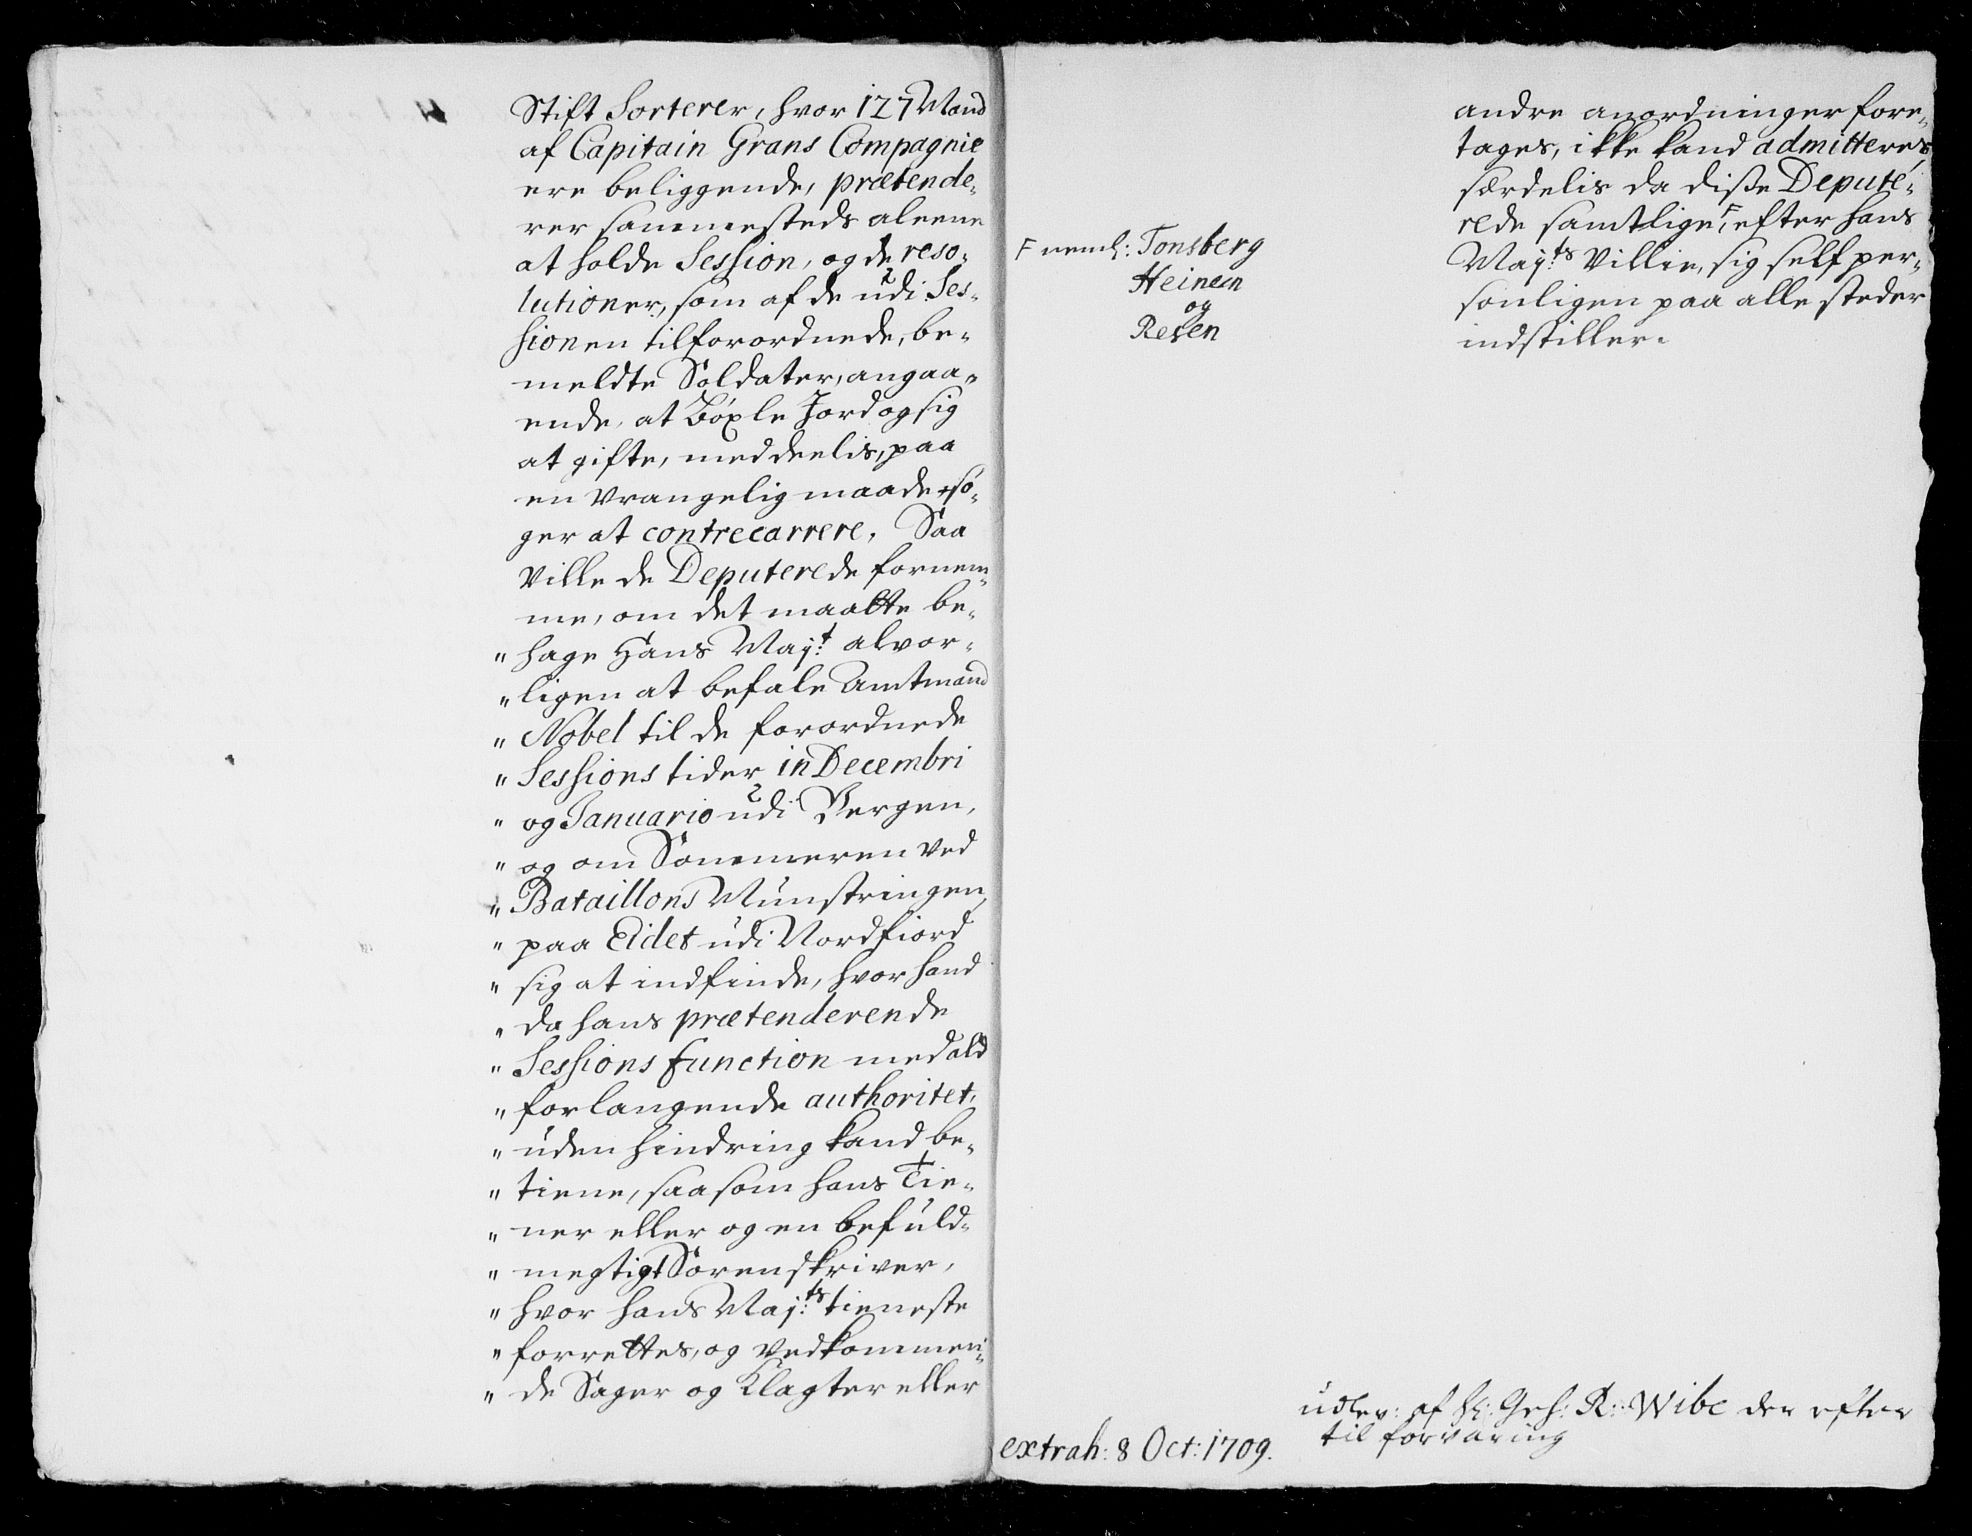 Stift Sorterer, hvor 127 Mand
af Capitain Grans Compagnie
ere beliggende, prætende-
rer sammesteds aleene
at holde Session, og de reso-
lutioner, som af de udi Ses-
sionen tilforordnede, be-
meldte Soldater, angaa-
ende, at Böxle Jord og sig
at gifte, meddeelis, paa
en vrangelig maade sö-
ger at contrecarrere. Saa
Ville de Deputerede fornem-
me, om det maatte be-
" hage Hans Maj:t alvor-
" ligen at befale Amtmand
" Nobel til de forordnede
" Sessions tider in Decembri
" og Januario udi Bergen,
" og om Sommeren ved
" Bataillons Munstringen,
" paa Eidet udi Nordfiord
" sig at indfinde, hvor hand
" da hans prætenderende
" Sessions function med ald
" forlangende authoritet,
" uden hindring kand be-
" tiene, saasom hans Tie-
" ner eller og en befuld-
" megtigt Sorenskriver,
" hvor hans Maj:ts tieneste
" forrettes, og vedkommen-
" de Sager og Klagter eller
andre anordninger fore-
tages, ikke kand admitteres,
særdelis da disse Depute-
rede samtlige, F efter hans
Maj:ts Villie, sig self per-
sonligen paa alle steder
indstiller.
F neml: Tonsberg
Heinen
og
Resen
udlev: af H: Geh: R: Wibe der efter
til forvaring
extrah: 8 Oct: 1709.